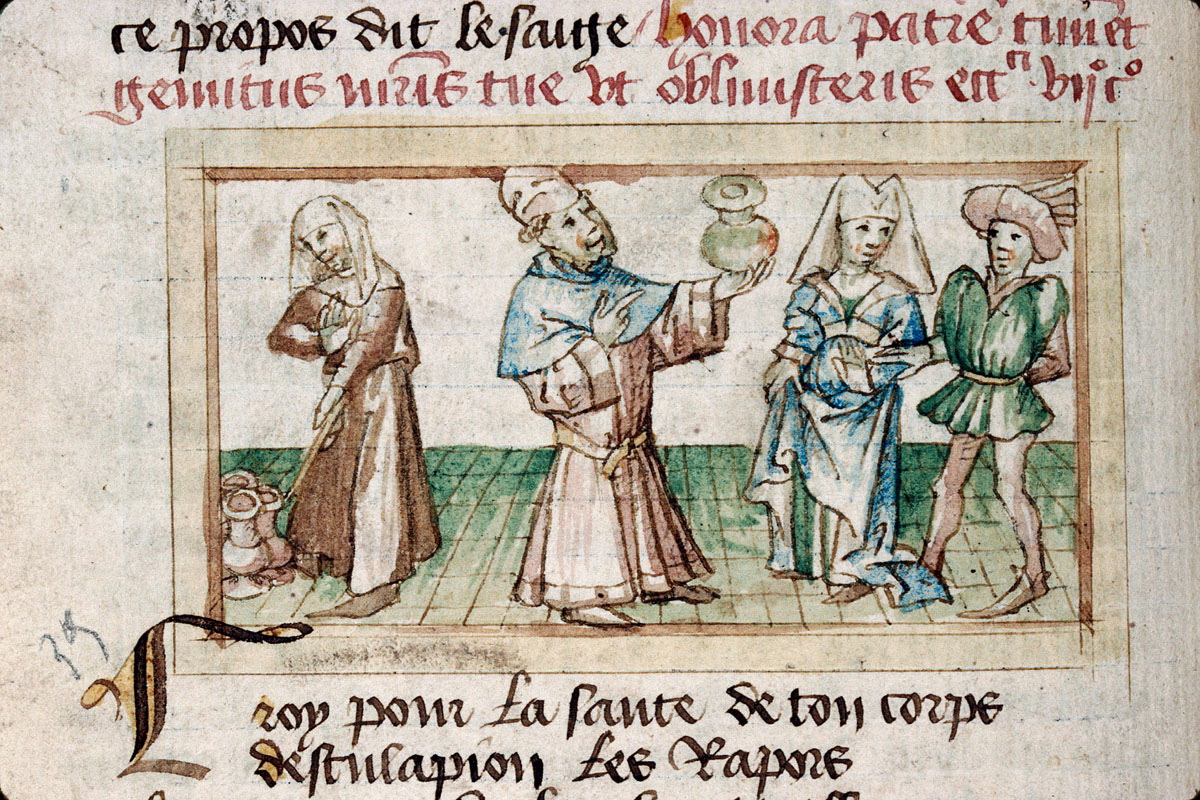 ce propos dit le saige honora patrē tuū et
gemitus mr̄is tue ut obliuisteris ecc vijo co
roy pour La sante de ton corps
desculapion Les Rapors
35